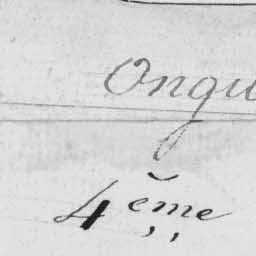 Ongu
4ème